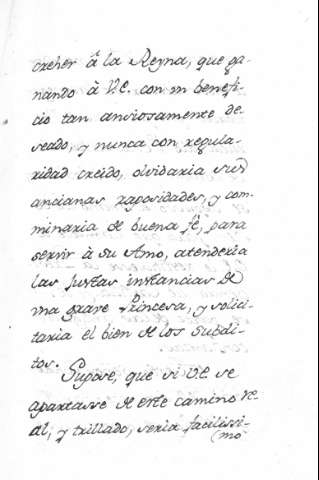 creher â la Reyna, que ga-
nando à V.E. con un benefi-
cio tan anciosamente de-
seado, y nunca con regula-
ridad creido, olvidaria sus
ancianas raposidades, y com-
minaria de buena fé, para
servir à su Amo, atenderia
las justas instancias de
una grave Princesa, y solici-
taria el bien de los Subdi-
tos.
Supose, que si V.E. se
apartasse de este camino re-
al, y trillado, seria facilissi-
(mo